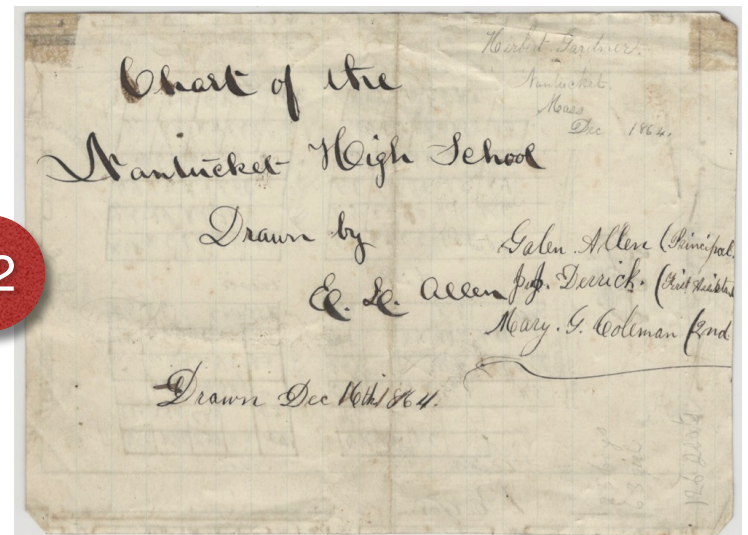 Herbert Gardner.
Nantucket.
Mass
Dec 1864.
Chart of the
Nantucket High School
Drawn by
E. L. Allen
Galen Allen (Principal
Derrick. (First Assista
Mary. G. Coleman (2nd
Drawn Dec 16th 1864.
2